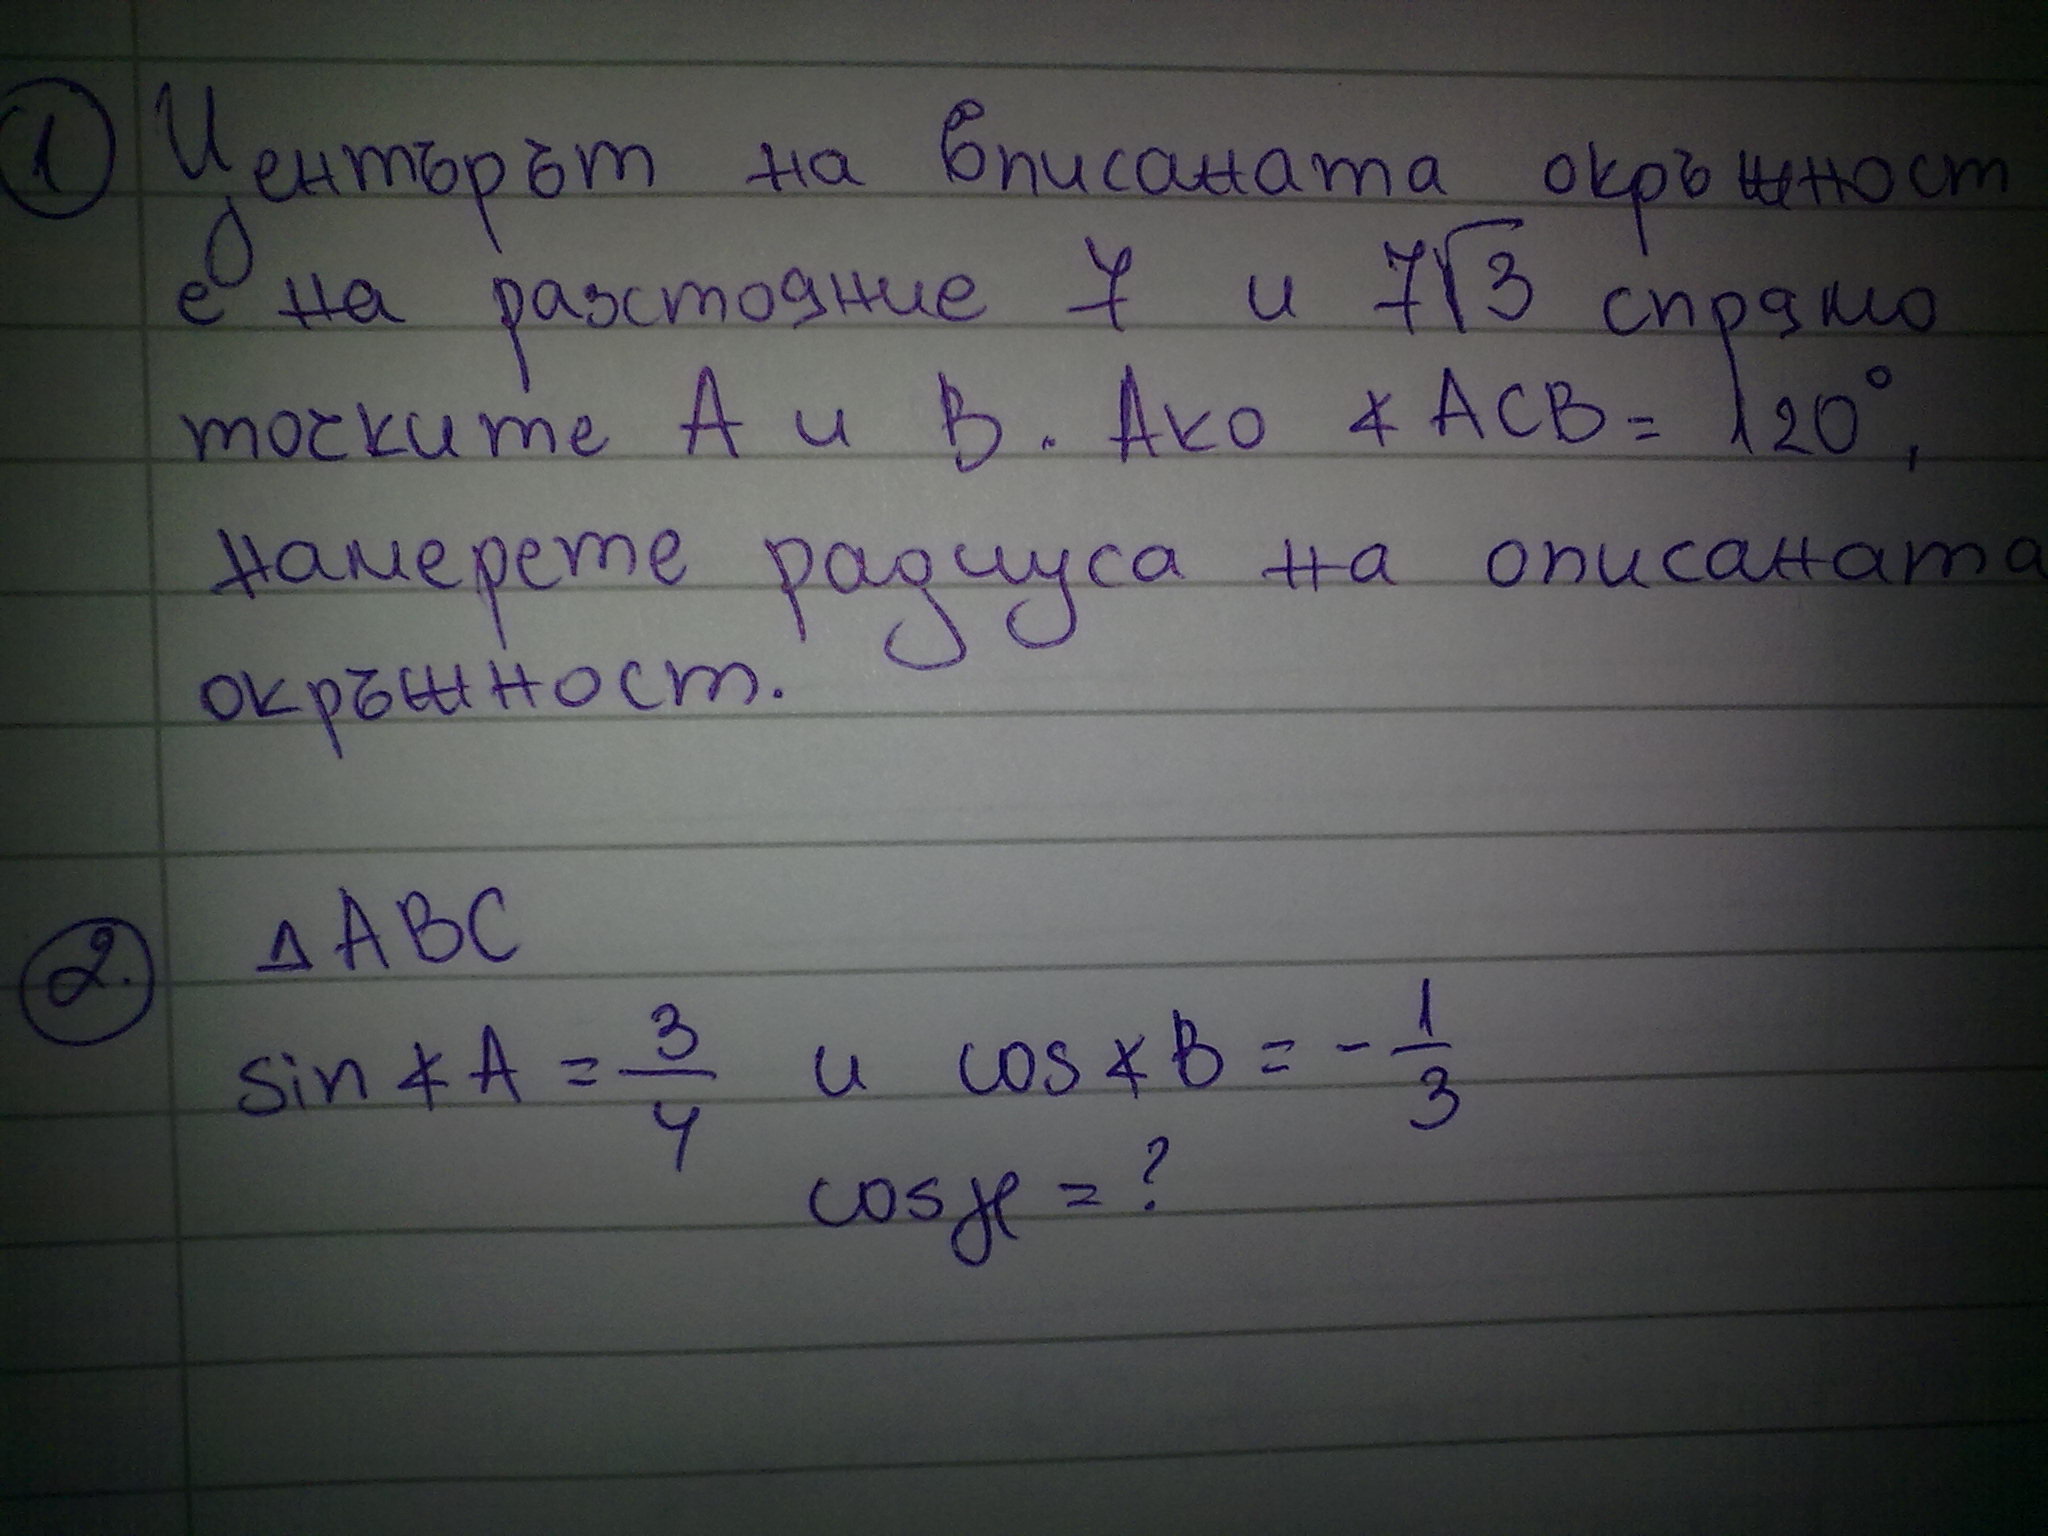 1 Центърът на вписаната окръжност
е на разстояние 7 и 7√3 спрямо
точките A и B. Ако ∢ACB = 120°,
намерете радиуса на описаната
окръжност.
2. △ABC
sin∢A = 3/4 и cos∢B = -1/3
cosɣ = ?